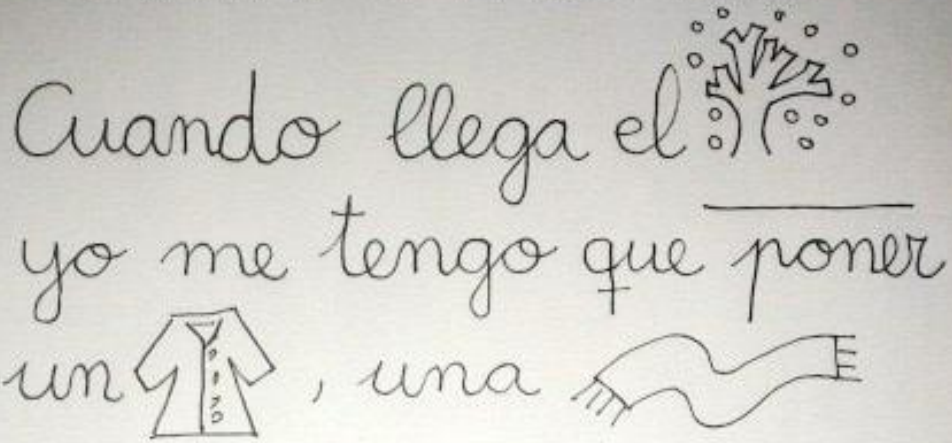 Cuando llega el
yo me tengo que poner
un , una